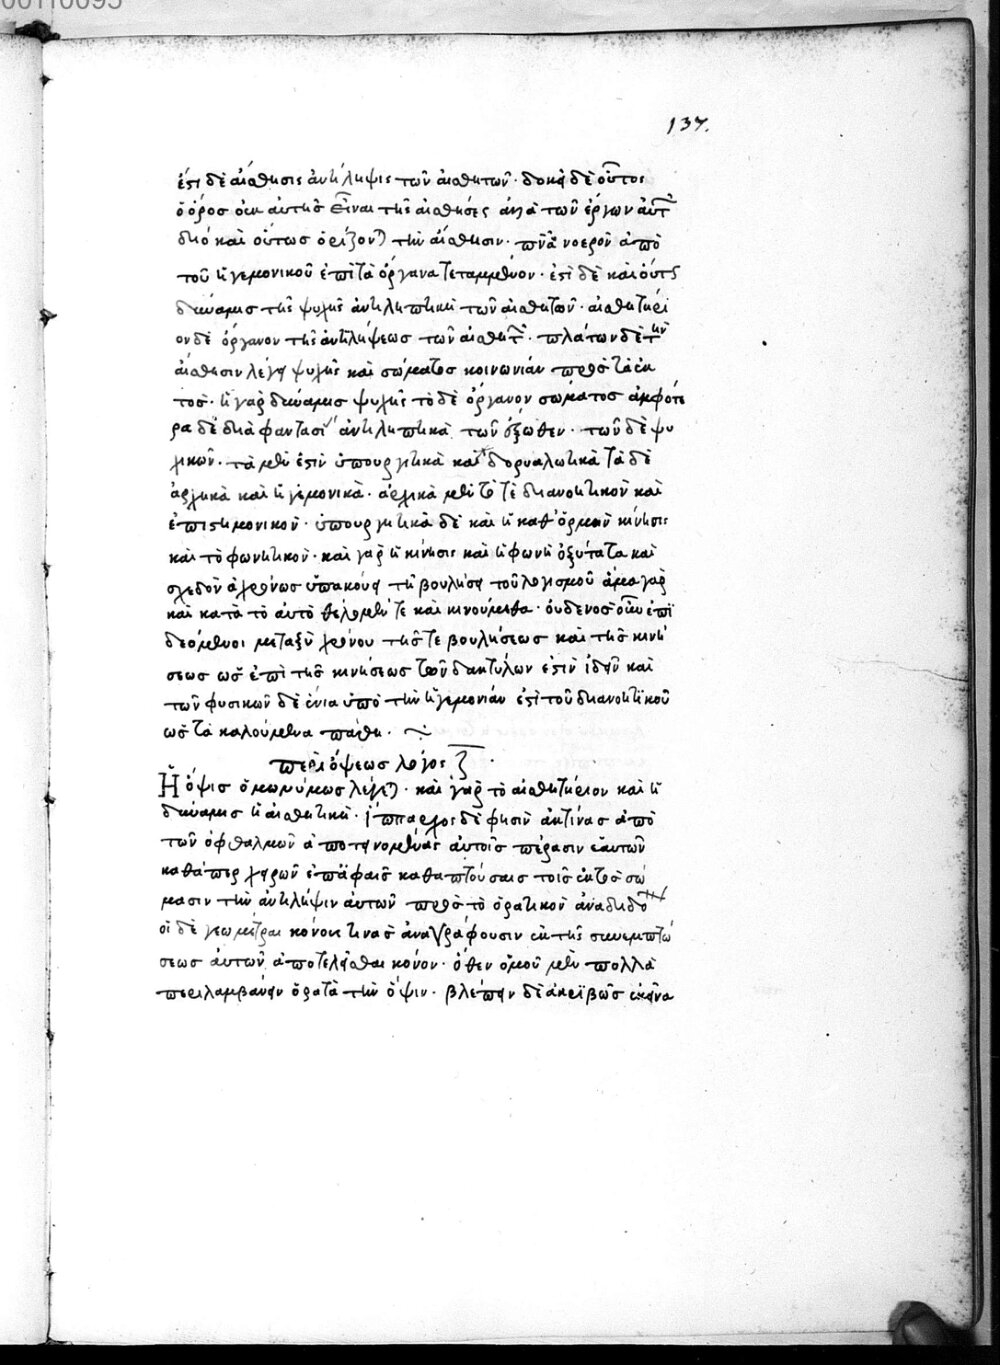 137.
ἔστι δὲ αἴσθησις ἀντίληψις τῶν αἰσθητῶν· δοκεῖ δὲ οὗτος
ὁ ὅρος οὐκ αὐτῆς εἶναι τῆς αἰσθήσεως ἀλλὰ τῶν ἔργων αὐτῆς
διὸ καὶ οὕτως ὁρίζονται τὴν αἴσθησιν· πνᾶ νοερὸν ἀπὸ
τοῦ ἡγεμονικοῦ ἐπὶ τὰ ὄργανα τεταμμένον· ἔστι δὲ καὶ οὕτως
δύναμις τῆς ψυχῆς ἀντιληπτικὴ τῶν αἰσθητῶν· αἰσθητήρι
ον δὲ ὄργανον τῆς ἀντιλήψεως τῶν αἰσθητῶν· πλάτων δὲ τὴν
αἴσθησιν λέγει ψυχῆς καὶ σώματος κοινωνίαν πρὸς τὰ ἐκ
τός· ἡ γὰρ δύναμις ψυχῆς τὸ δὲ ὄργανον σώματος ἀμφότε
ρα δὲ διὰ φαντασί ἀντιληπτικὰ τῶν ἔξωθεν· τῶν δὲ ψυ
χικῶν· τὰ μέν ἐστιν ὑπουργητικὰ καὶ δορυαλωτικὰ τὰ δὲ
ἀρχικὰ καὶ ἡγεμονικὰ· ἀρχικὰ μὲν τό τε διανοητικὸν καὶ
ἐπιστημονικὸν· ὑπουργητικὰ δὲ καὶ ἡ καθ' ὁρμὴν κίνησις
καὶ τὸ φωνητικὸν· καὶ γὰρ ἡ κίνησις καὶ ἡ φωνὴ ὀξύτατα καὶ
σχεδὸν ἀχρόνως ὑπακούει τῇ βουλήσει τοῦ λογισμοῦ ἅμα γὰρ
καὶ κατὰ τὸ αὐτὸ θέλομέν τε καὶ κινούμεθα· οὐδενὸς οὖν ἐπι
δεόμενοι μεταξὺ χρόνου τῆς τε βουλήσεως καὶ τῆς κινή
σεως ὡς ἐπὶ τῆς κινήσεως τῶν δακτύλων ἐστὶν ἰδεῖν καὶ
τῶν φυσικῶν δὲ ἔνια ὑπὸ τὴν ἡγεμονίαν ἐστὶ τοῦ διανοητικοῦ
ὡς τὰ καλούμενα πάθη·
περὶ ὄψεως λόγος ζ·
Ἡ ὄψις ὁμωνύμως λέγεται· καὶ γὰρ τὸ αἰσθητήριον καὶ ἡ
δύναμις ἡ αἰσθητικὴ· ἵππαρχος δέ φησιν ἀκτῖνας ἀπὸ
τῶν ὀφθαλμῶν ἀποτεινομένας αὐτοῖς πέρασιν ἑαυτῶν
καθάπερ χειρῶν ἐπαφαῖς καθαπτούσαις τοῖς ἐκτὸς σώ
μασιν τὴν ἀντίληψιν αὐτῶν πρὸς τὸ ὁρατικὸν ἀναδιδό
οἱ δὲ γεωμέτραι κόνους τινὰς ἀναγράφουσιν ἐκ τῆς συνεμπτώ
σεως αὐτῶν ἀποτελεῖσθαι κόνον· ὅθεν ὁμοῦ μὲν πολλὰ
περιλαμβάνειν ὁρατὰ τὴν ὄψιν· βλέπειν δὲ ἀκριβῶς ἐκεῖνα